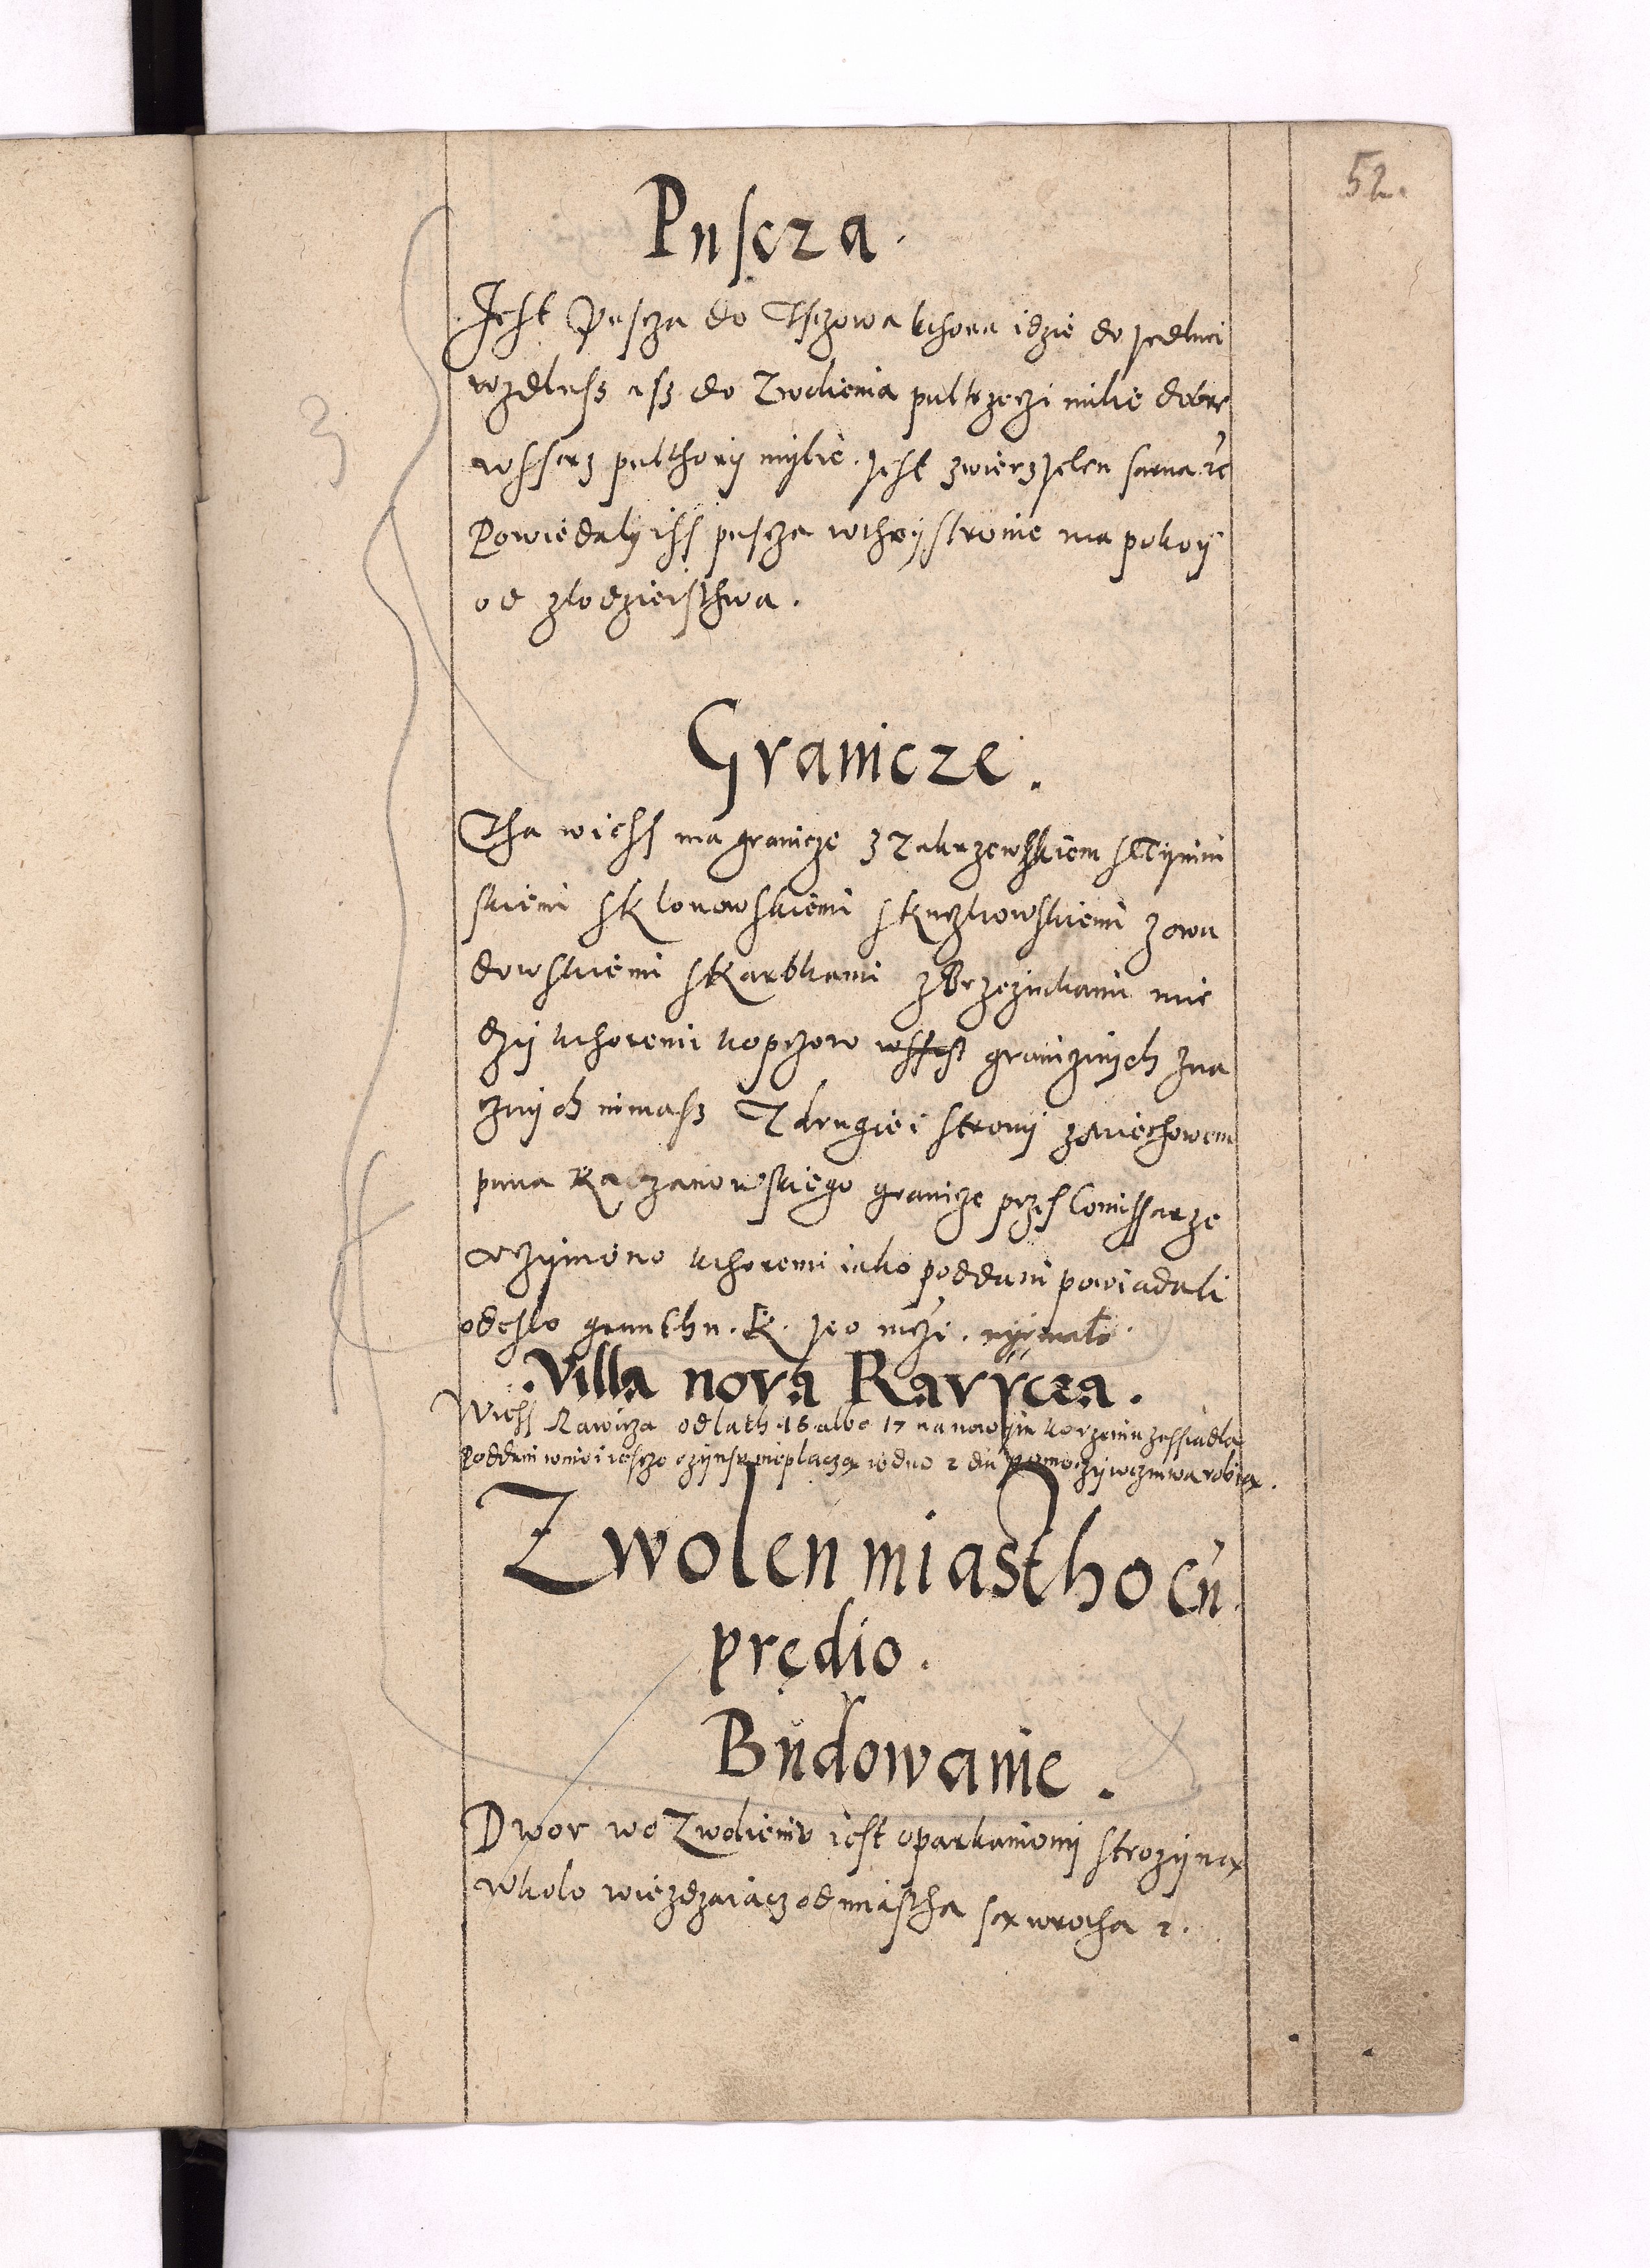 52.
Puscza.
Jesth Puscza do Tsczowa kthora idzie do Jedlnci
wzdlusz asz do Zwolienia pultrzeczi milie dobre
wsserz pulthory mylie. Jesth zwierz Jelen sarna etc
Powiedaly iss puscza wthey stronie ma pokoy
od zlodzieisthwa.
Granicze.
Tha wiess ma granicze z Zakrzewskiem s Tymin
skiemi sklonowskiemi s Kuczkowskiemi zowa
dowskiemi s Karbkami z Brzezinkami mie
dzy kthoremi kopczow graniznych zna
cznych nimasz Z drugiei strony zmiechowem
pana Kaczanowskiego granicze przes Comissarze
uczyniono kthoremi iako poddani powiadali
odeslo grunthu. K. Jeo mczi. niemalo.
Villa nova Ravycza.
Wiess Rawicza od lath 16 albo 17 na nowym korzeniu zassiadla
Poddani wniei iescze czynsu nieplaczą iedno 2 dni pomoczy wczniwa robią.
Zwolen miastho cu
prędio.
Budowanie.
Dwor we Zwolieniu iest oparkaniony strozyną
wkolo wiezdzaiacz od miastha są wrotha 2.